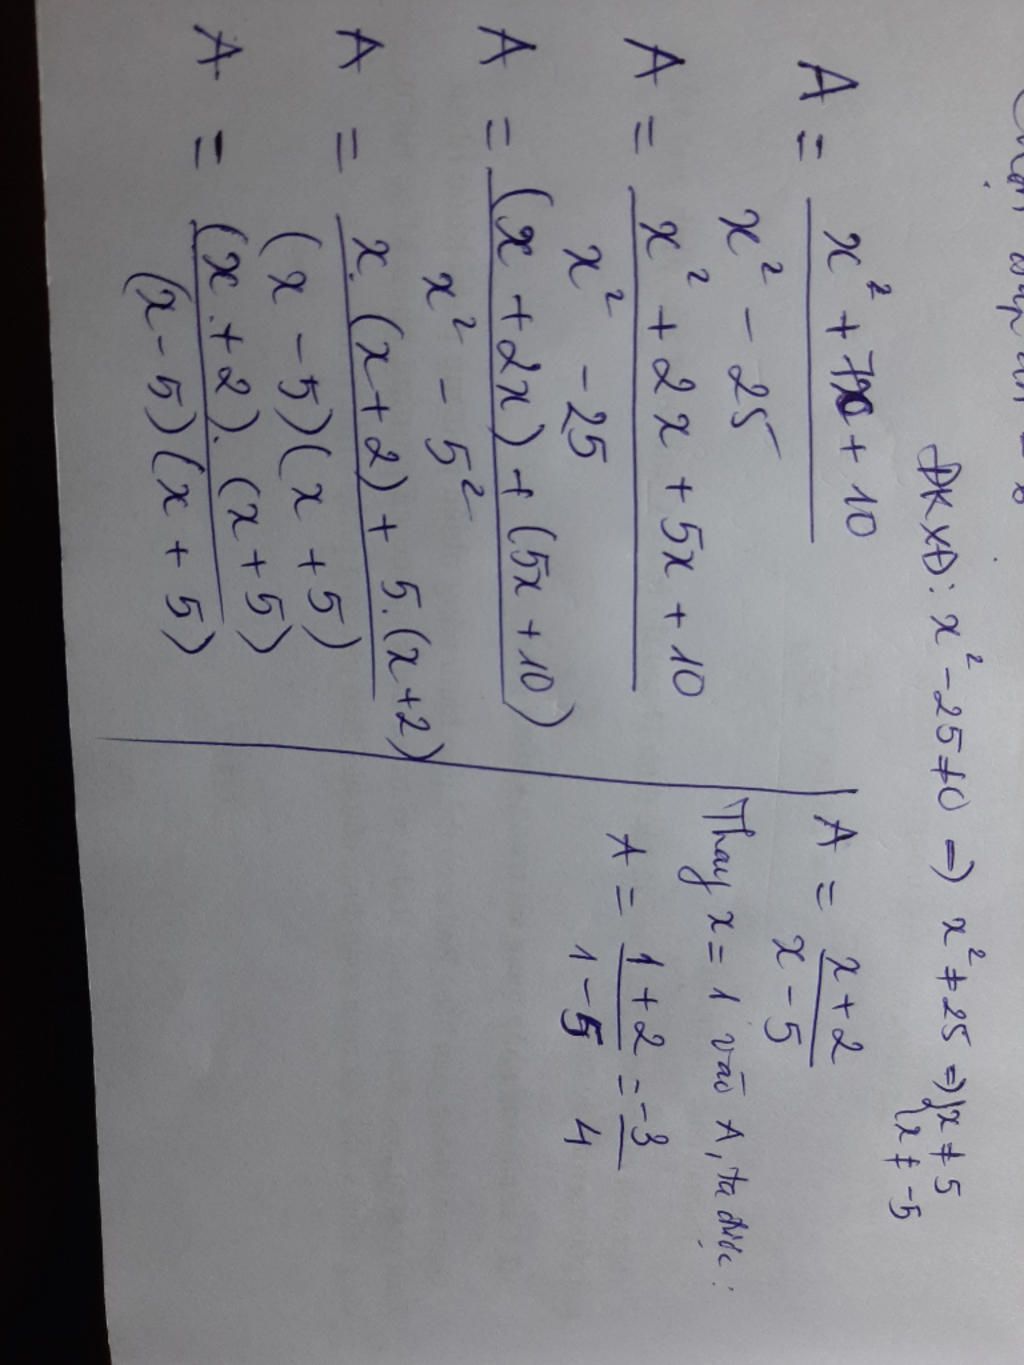 ĐKXĐ: x² - 25 ≠ 0 => x² ≠ 25 => { x ≠ 5
x ≠ -5
A = x² + 7x + 10
x² - 25
A = x² + 2x + 5x + 10
x² - 25
A = (x + 2x) + (5x + 10)
x² - 5²
A = x.(x+2) + 5.(x+2)
(x - 5)(x + 5)
A = (x + 2).(x + 5)
(x - 5)(x + 5)
A = x + 2
x - 5
Thay x = 1 vào A, ta được:
A = 1 + 2 = -3
1 - 5 4